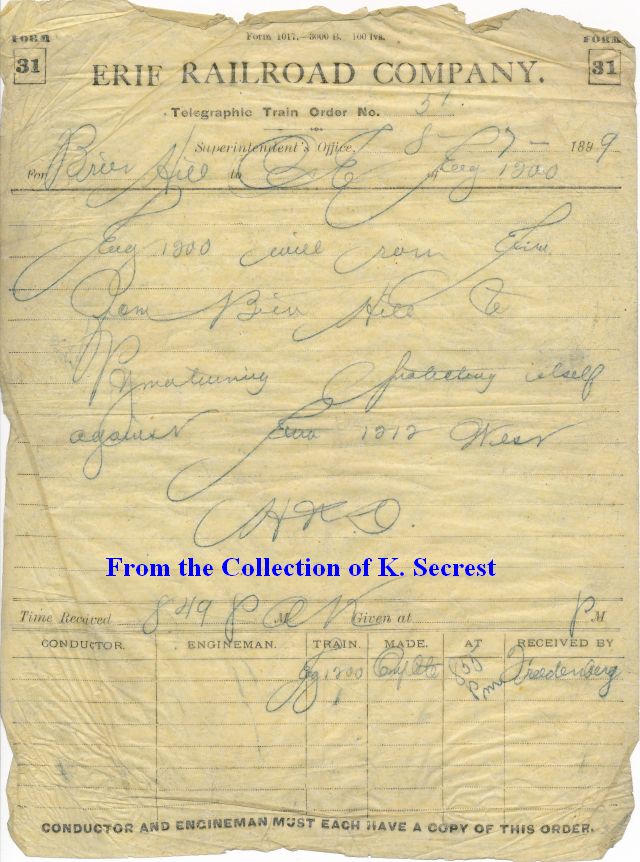 FORM Form 1017.—3000 B. 100 lvs. FORM
31 31
ERIE RAILROAD COMPANY.
Telegraphic Train Order No. 51
Superintendent's Office, 8 - 7 - 1899
For Brier Hill to C&E of Eng 1200
Eng 1200 will run
from Brier Hill to
Pymatuning protecting itself
against 1212 West
From the Collection of K. Secrest
Time Recived 8.49 P M OK Given at P M
CONDUCTOR. ENGINEMAN. TRAIN. MADE. AT RECEIVED BY
Eng 1200 855 Pm Freedenberg
CONDUCTOR AND ENGINEMAN MUST EACH HAVE A COPY OF THIS ORDER.